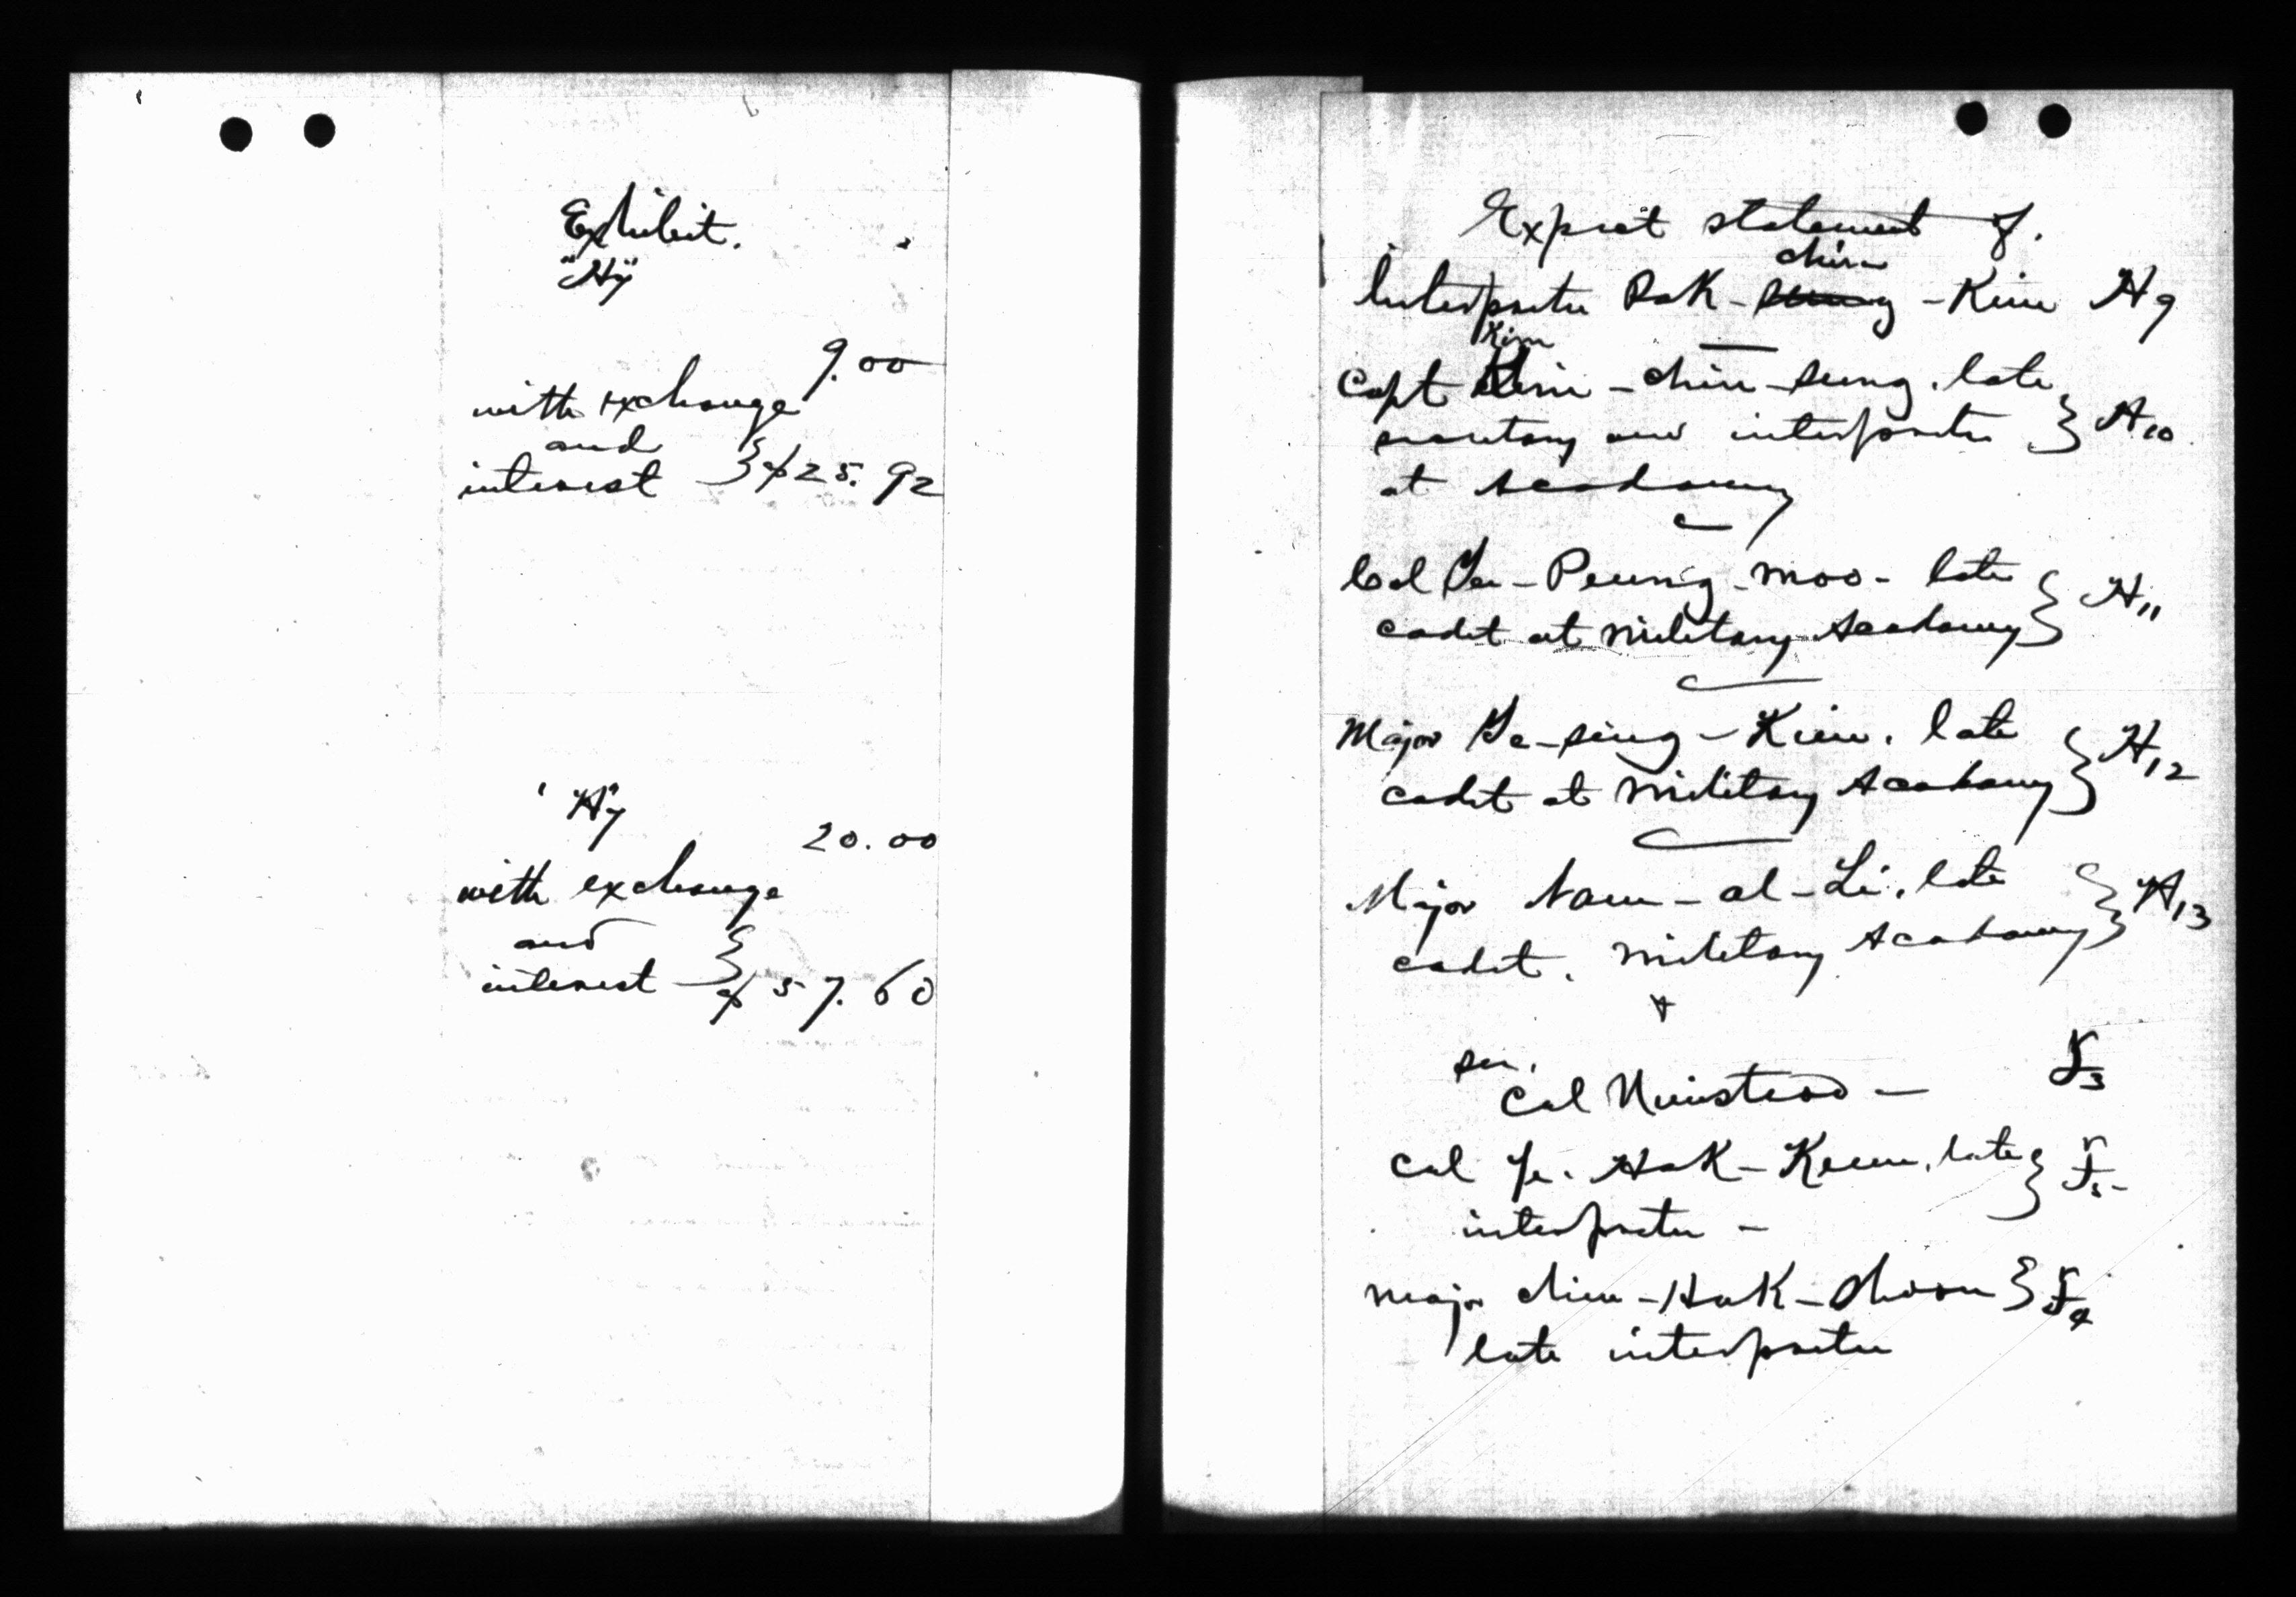 Exhibit.
"H7"
9.00
with exchange
and
interest } $25.92
"H7
20.00
with exchange
and
interest } $57.60
Expret statement of.
chin
Interpreter Pak - - Kim H9
Kim
Capt Kim - chin - sung. late
secretary and interpreter } H10
at Academy
Col Yu - Peung - moo - late
cadet at Military Academy } H11
Major Ye - sing - Kim. late
cadet at Military Academy } H12
Major Nam - al - Li. late
cadet. Military Academy } H13
&
Col Nienstead - 3
Col Ye. Hak - Keun. late
interpreter -
Major Chim - Hak - Choon }
late interpreter